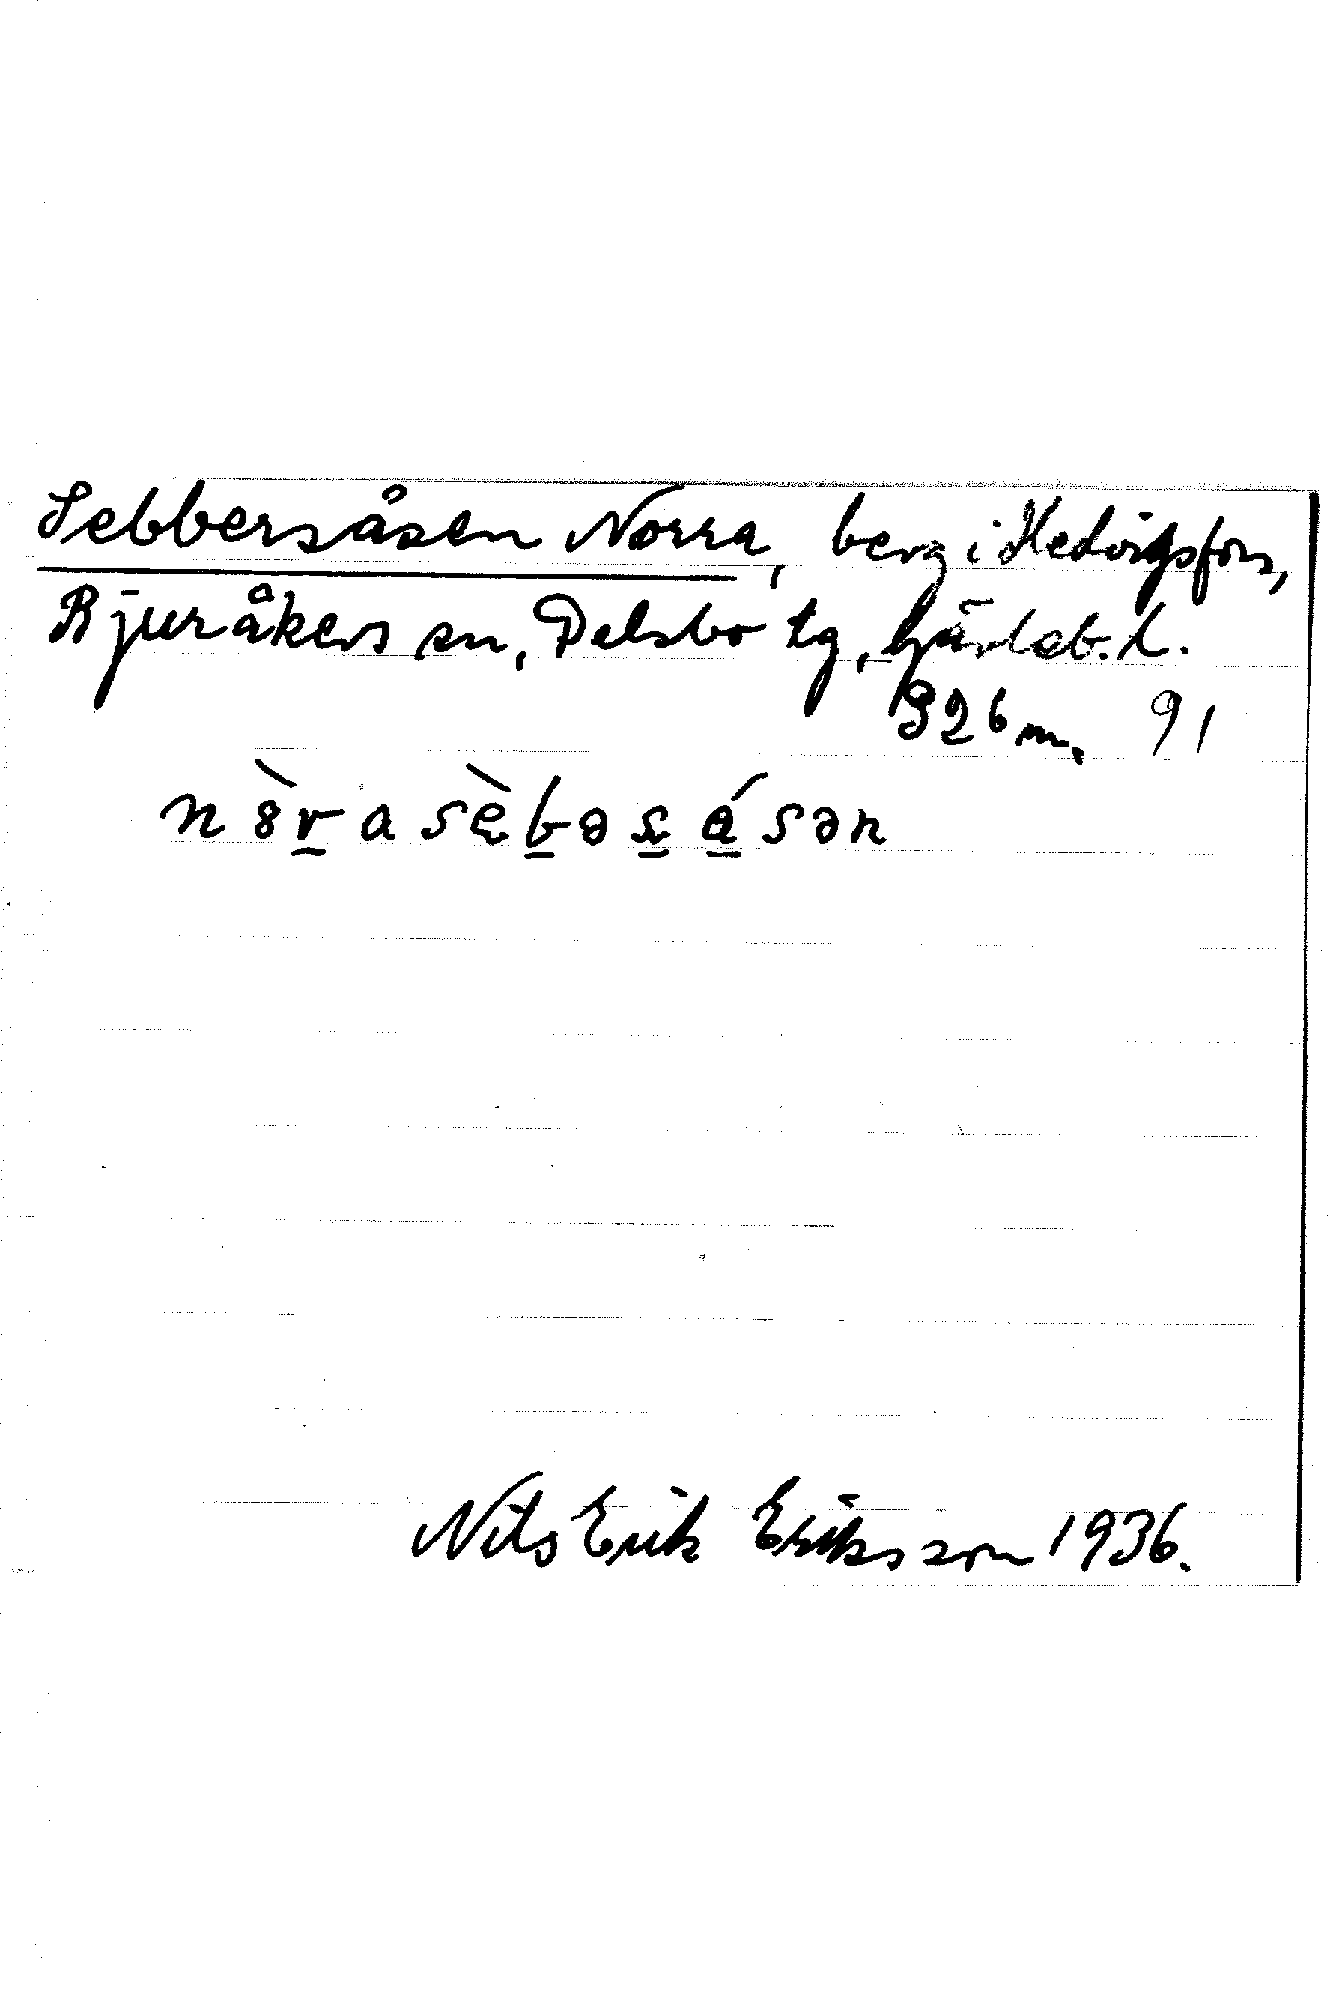 Sebbersåsen Norra, berg i Hedvigsfors,
Bjuråkers sn, Delsbo tg, Gävleb. l.
326 m. 91
nòrasèbəsåsən
Nils Erik Eriksson 1936.